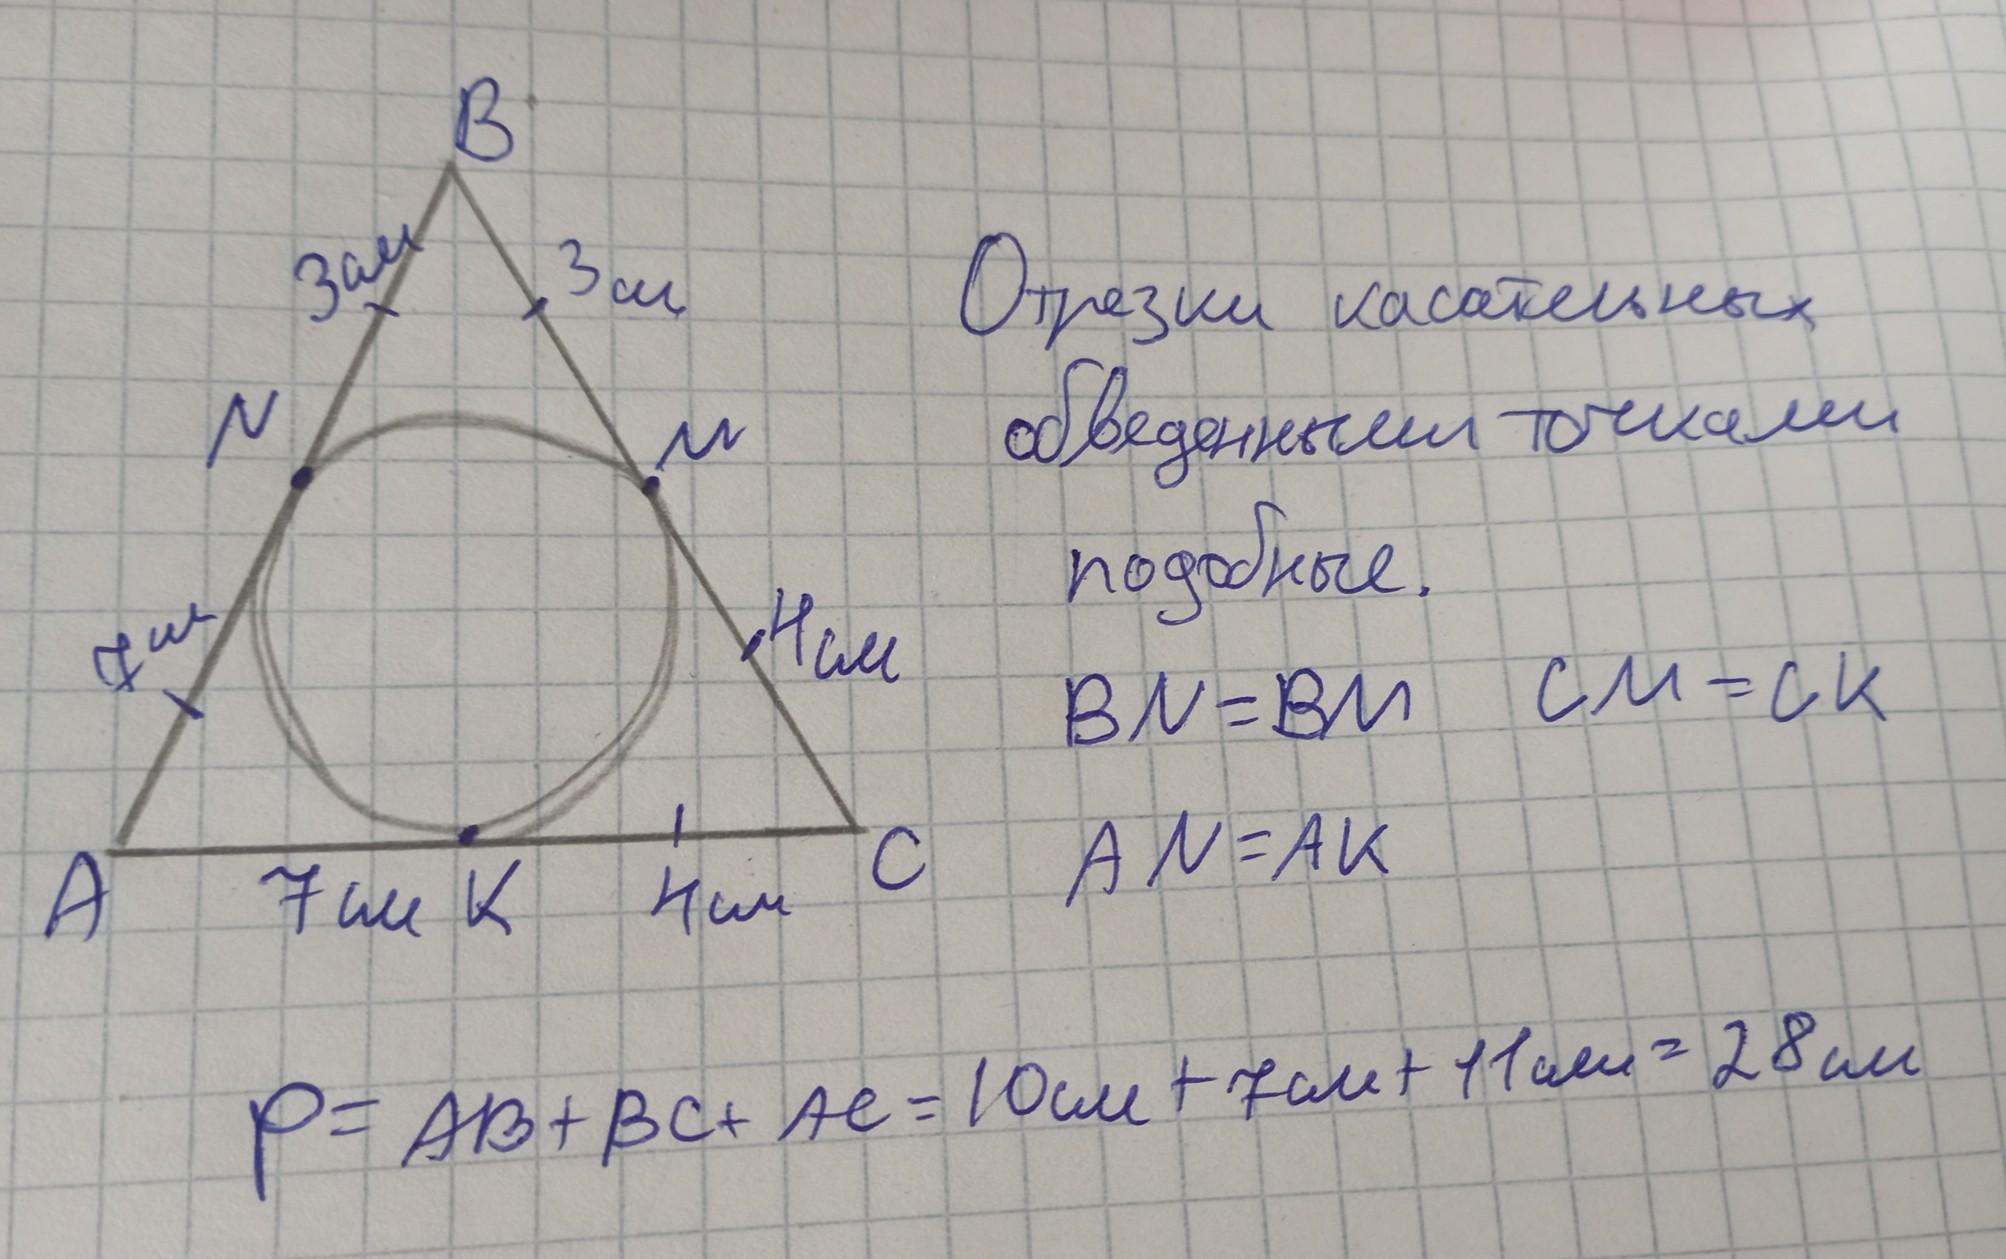 B
3 см
3 см
N
M
7 см
4 см
A
7 см
K
4 см
C
Отрезки касательных
обведенными точками
подобные.
BN=BM CM=CK
AN=AK
P= AB+BC+ AC=10см+7см+11см=28см